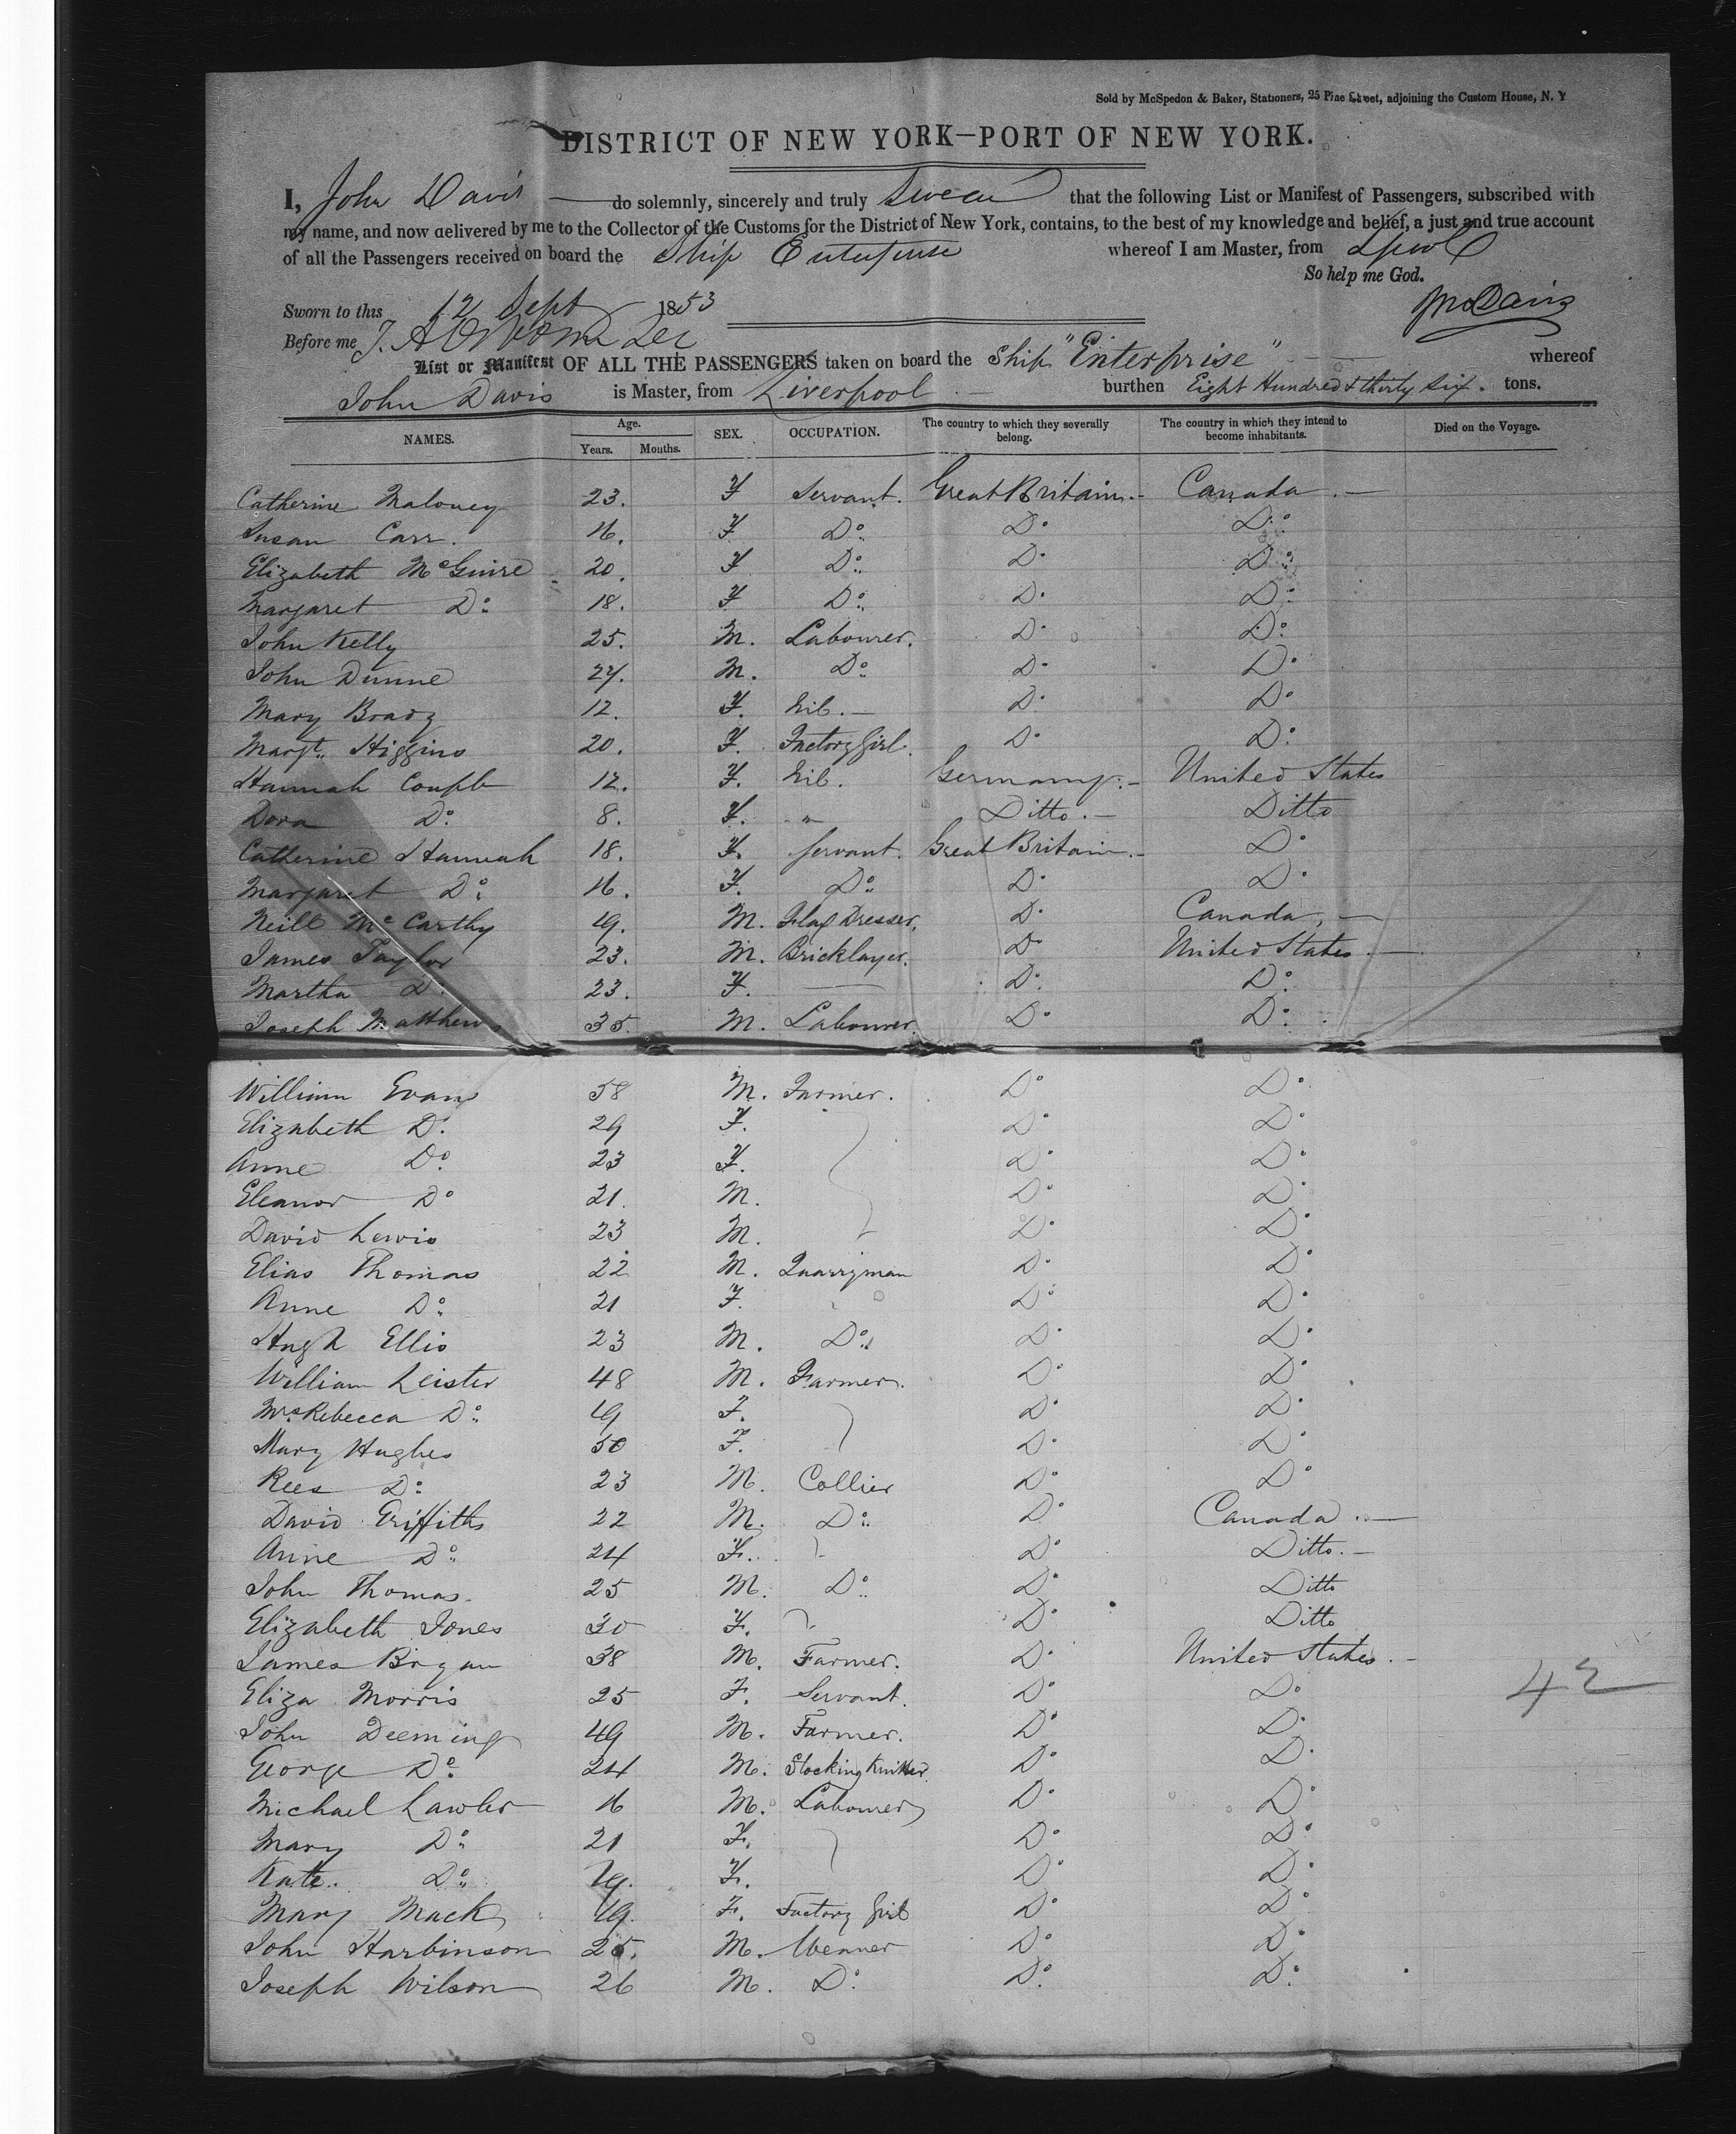 Sold by McSpedon & Baker, Stationers, 25 Pine Street, adjoining the Custom House, N. Y
DISTRICT OF NEW YORK—PORT OF NEW YORK.
I, John Davis do solemnly, sincerely and truly Swear that the following List or Manifest of Passengers, subscribed with
my name, and now delivered by me to the Collector of the Customs for the District of New York, contains, to the best of my knowledge and belief, a just and true account
of all the Passengers received on board the Ship Enterprise whereof I am Master, from Lpool
So help me God.
Sworn to this 12 Sept 1853
Jno Davis
Before me
List or Manifest OF ALL THE PASSENGERS taken on board the Ship "Enterprise" whereof
John Davis is Master, from Liverpool burthen Eight Hundred & thirty Six. tons.
NAMES. Age. Years. Months. SEX. OCCUPATION. The country to which they severally belong. The country in which they intend to become inhabitants. Died on the Voyage.
Catherine Maloney 23. F Servant. Great Britain.- Canada.-
Susan Carr. 16. F Do. Do Do
Elizabeth McGuire 20. F Do. Do Do
Margaret Do 18. F Do. Do Do
John Kelly 25. M. Labourer. Do Do
John Dunne 27. M. Do Do Do
Mary Brady 12. F. Nil.- Do Do
Margt. Higgins 20. F. Factory Girl. Do Do
Hannah 12. F. Nil. Germany.- United States
Dora Do 8. F. " Ditto.- Ditto
Catherine Hannah 18. F. Servant. Great Britain.- Do
Margaret Do 16. F. Do Do Do
Neill McCarthy 19. M. Flax Dresser. Do Canada.-
James Taylor 23. M. Bricklayer. Do United States.-
Martha Do 23. F. — Do Do
Joseph Matthews 35. M. Labourer. Do Do
William Evans 58 M. Farmer. Do Do
Elizabeth Do 29 F. Do Do
Anne Do 23 F. Do Do
Eleanor Do 21. M. Do Do
David Lewis 23 M. Do Do
Elias Thomas 22 M. Quarryman Do Do
Anne Do 21 F. Do Do
Hugh Ellis 23 M. Do Do Do
William Leister 48 M. Farmer. Do Do
Mrs Rebecca Do 19 F. Do Do
Mary Hughes 50 F. Do Do
Rees Do 23 M. Collier Do Do
David Griffiths 22 M. Do Do Canada.-
Anne Do 24 F. Do Ditto.-
John Thomas. 25 M. Do Do Ditto
Elizabeth Jones 30 F. Do Ditto
James Bryan 38 M. Farmer. Do United States.-
Eliza Morris 25 F. Servant. Do Do
42
John Deeming 49 M. Farmer. Do Do
George Do 24 M. Stocking Knitter. Do Do
Michael Lawler 16 M. Labourer Do Do
Mary Do 21 F. Do Do
Kate. Do 19. F. Do Do
Mary Mack 19. F. Factory Girl Do Do
John Harbinson 25. M. Weaver Do Do
Joseph Wilson 26 M. Do Do Do